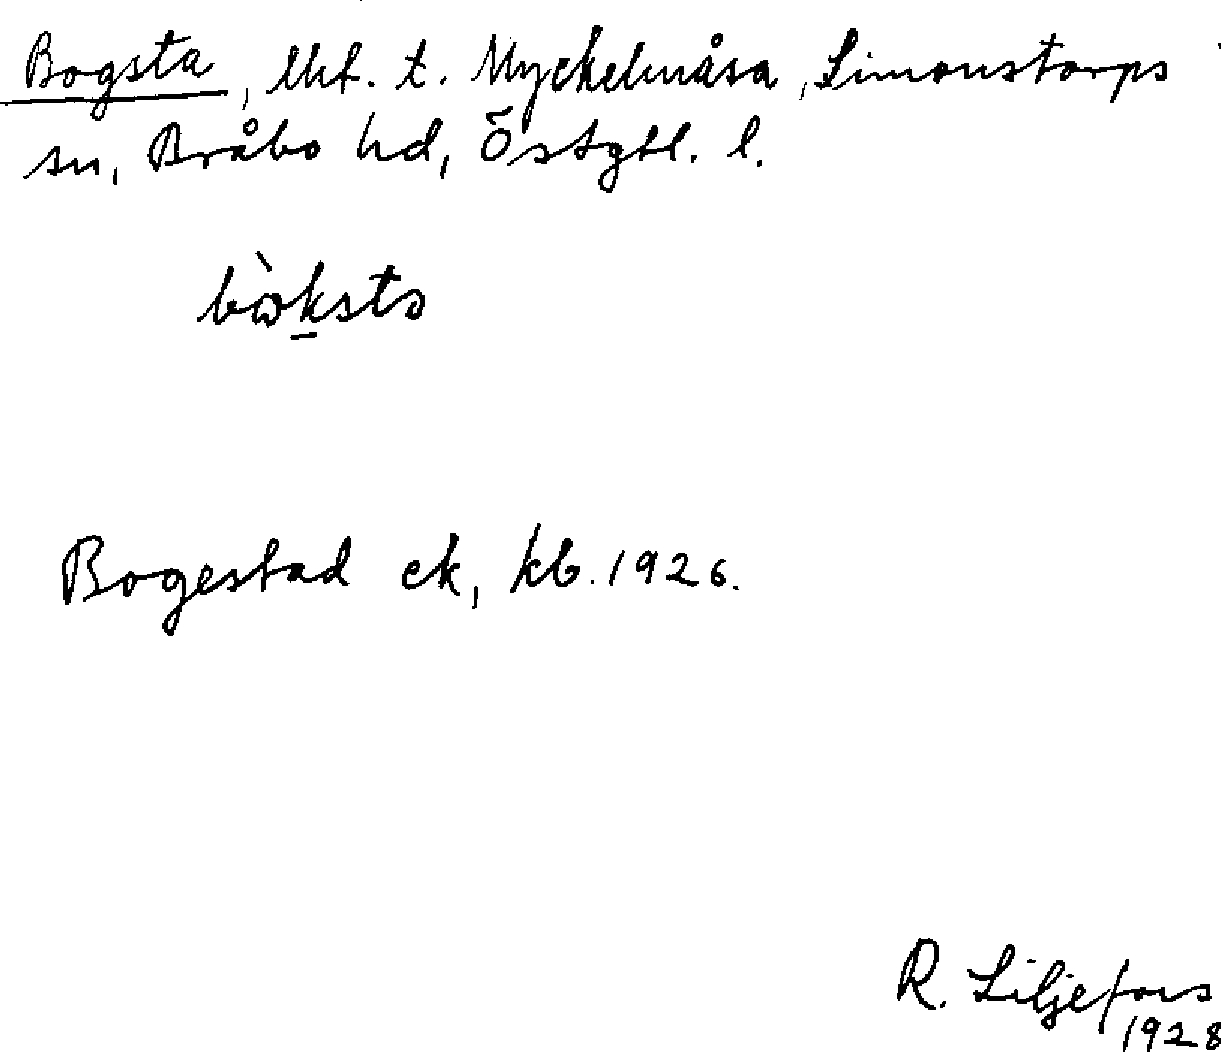 Bogsta, lht. t. Myckelmåsa, Simonstorps
sn, Bråbo hd, Östgtl. l.
bὼksta
Bogestad ek, kb. 1926.
R. Liljefors
1928